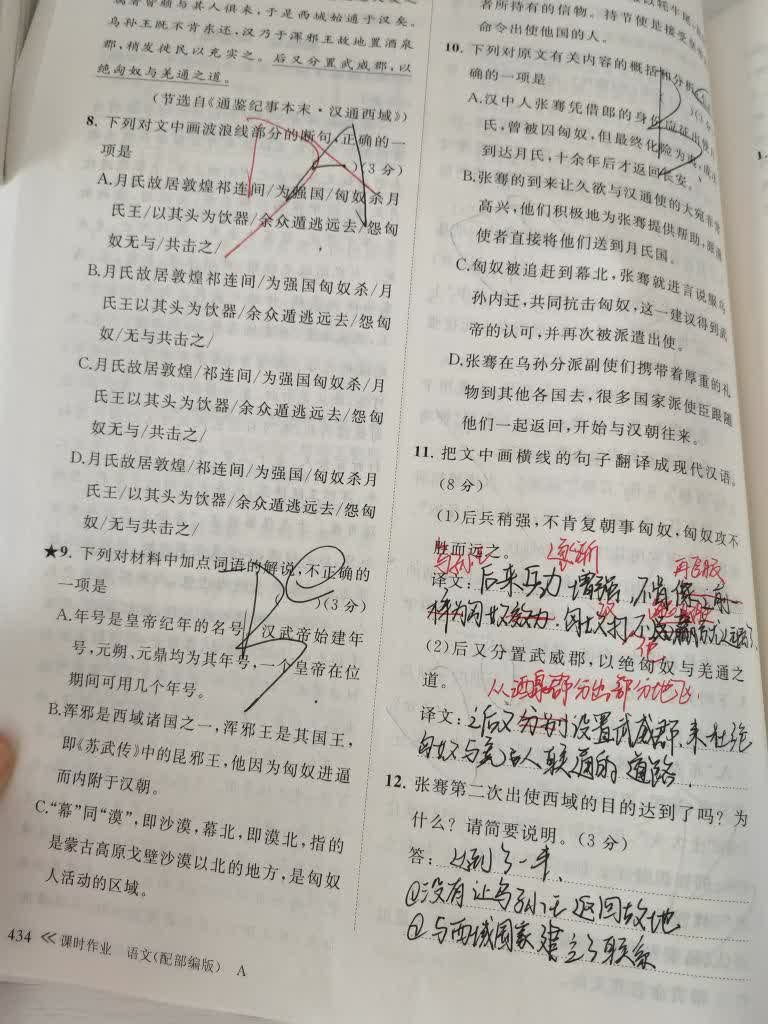 属者皆颇与其人俱来，于是西域始通于汉矣。
乌孙王既不肯东还，汉乃于浑邪王故地置酒泉
郡，稍发徙民以充实之。后又分置武威郡，以
绝匈奴与羌通之道。
（节选自《通鉴纪事本末·汉通西域》）
8. 下列对文中画波浪线部分的断句，正确的一
项是 )(3分)
A.月氏故居敦煌祁连间/为强国/匈奴杀月
氏王/以其头为饮器/余众遁逃远去/怨匈
奴无与/共击之/
B.月氏故居敦煌祁连间/为强国匈奴杀/月
氏王以其头为饮器/余众遁逃远去/怨匈
奴/无与共击之/
C.月氏故居敦煌/祁连间/为强国匈奴杀/月
氏王以其头为饮器/余众遁逃远去/怨匈
奴无与/共击之/
D.月氏故居敦煌/祁连间/为强国/匈奴杀月
氏王/以其头为饮器/余众遁逃远去/怨匈
奴/无与共击之/
★9. 下列对材料中加点词语的解说，不正确的
一项是 B )(3分)
A.年号是皇帝纪年的名号，汉武帝始建年
号，元朔、元鼎均为其年号，一个皇帝在位
期间可用几个年号。
B.浑邪是西域诸国之一，浑邪王是其国王，
即《苏武传》中的昆邪王，他因为匈奴进逼
而内附于汉朝。
C.“幕”同“漠”，即沙漠，幕北，即漠北，指的
是蒙古高原戈壁沙漠以北的地方，是匈奴
人活动的区域。
434 ≪ 课时作业 语文(配部编版) A
者所持有的信物。持节使是接受
命令出使他国的人。
10. 下列对原文有关内容的概括和分析，
确的一项是 )(3
A.汉中人张骞凭借郎的身份应征出使
氏，曾被囚匈奴，但最终化险为夷，
到达月氏，十余年后才返回长安。
B.张骞的到来让久欲与汉通使的大宛
高兴，他们积极地为张骞提供帮助，
使者直接将他们送到月氏国。
C.匈奴被追赶到幕北，张骞就进言说服乌
孙内迁，共同抗击匈奴，这一建议得到武
帝的认可，并再次被派遣出使。
D.张骞在乌孙分派副使们携带着厚重的礼
物到其他各国去，很多国家派使臣跟随
他们一起返回，开始与汉朝往来。
11. 把文中画横线的句子翻译成现代汉语。
(8分)
(1)后兵稍强，不肯复朝事匈奴，匈奴攻不
胜而远之。
逐渐 再臣服
译文：后来兵力增强，不肯像之前
一样为匈奴效力，匈奴打不赢就远离了
他
(2)后又分置武威郡，以绝匈奴与羌通之
道。
从酒泉郡分出部分地区
译文：之后又分别设置武威郡，来杜绝
匈奴与羌人联通的道路。
12. 张骞第二次出使西域的目的达到了吗？为
什么？请简要说明。(3分)
答：达到了一半、
①没有让乌孙王返回故地
②与西域国家建立了联系